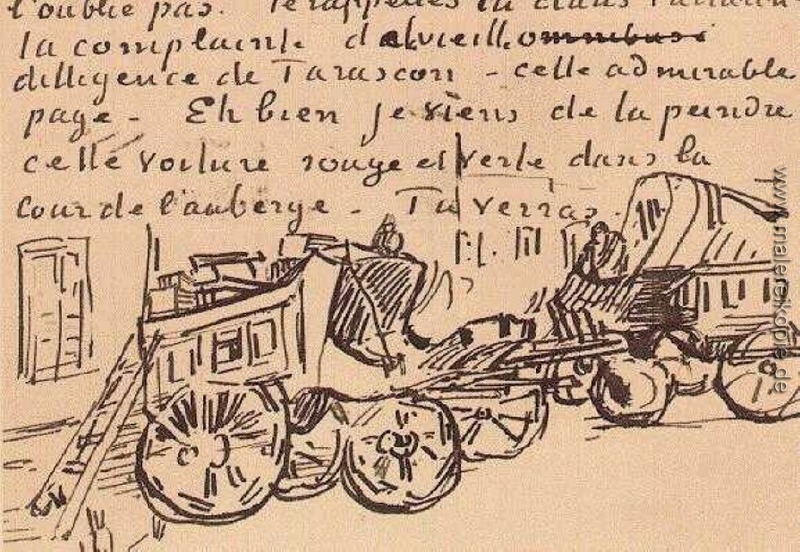 l'oublie pas. Te rappelles tu dans
la complainte de la vieille
dilligence de Tarascon – celle admirable
page – Eh bien je viens de la peindre
cette voiture rouge et verte dans la
cour de l'auberge – Tu verras.
www.malereikopie.de